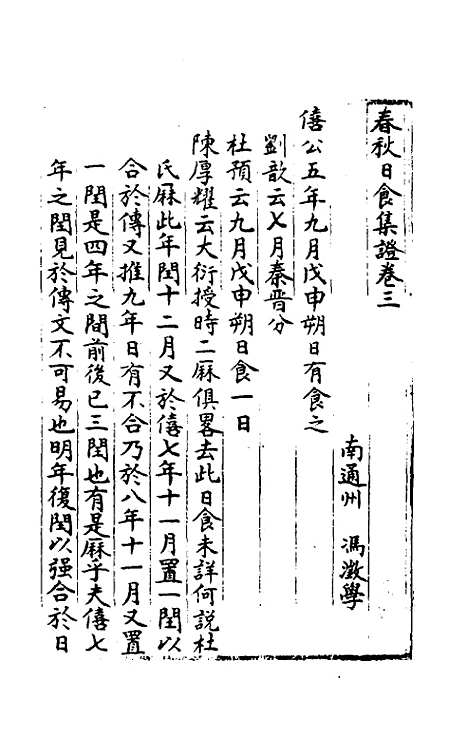 春秋日食集證卷三
南通州　馮澂學
僖公五年九月戊申朔日有食之
劉歆云七月秦晉分
杜預云九月戊申朔日食一日
陳厚耀云大衍授時二厤俱畧去此日食未詳何說杜
氏厤此年閏十二月又於僖七年十一月置一閏以
合於傳又推九年日有不合乃於八年十一月又置
一閏是四年之間前後已三閏也有是厤乎夫僖七
年之閏見於傳文不可易也明年復閏以强合於日